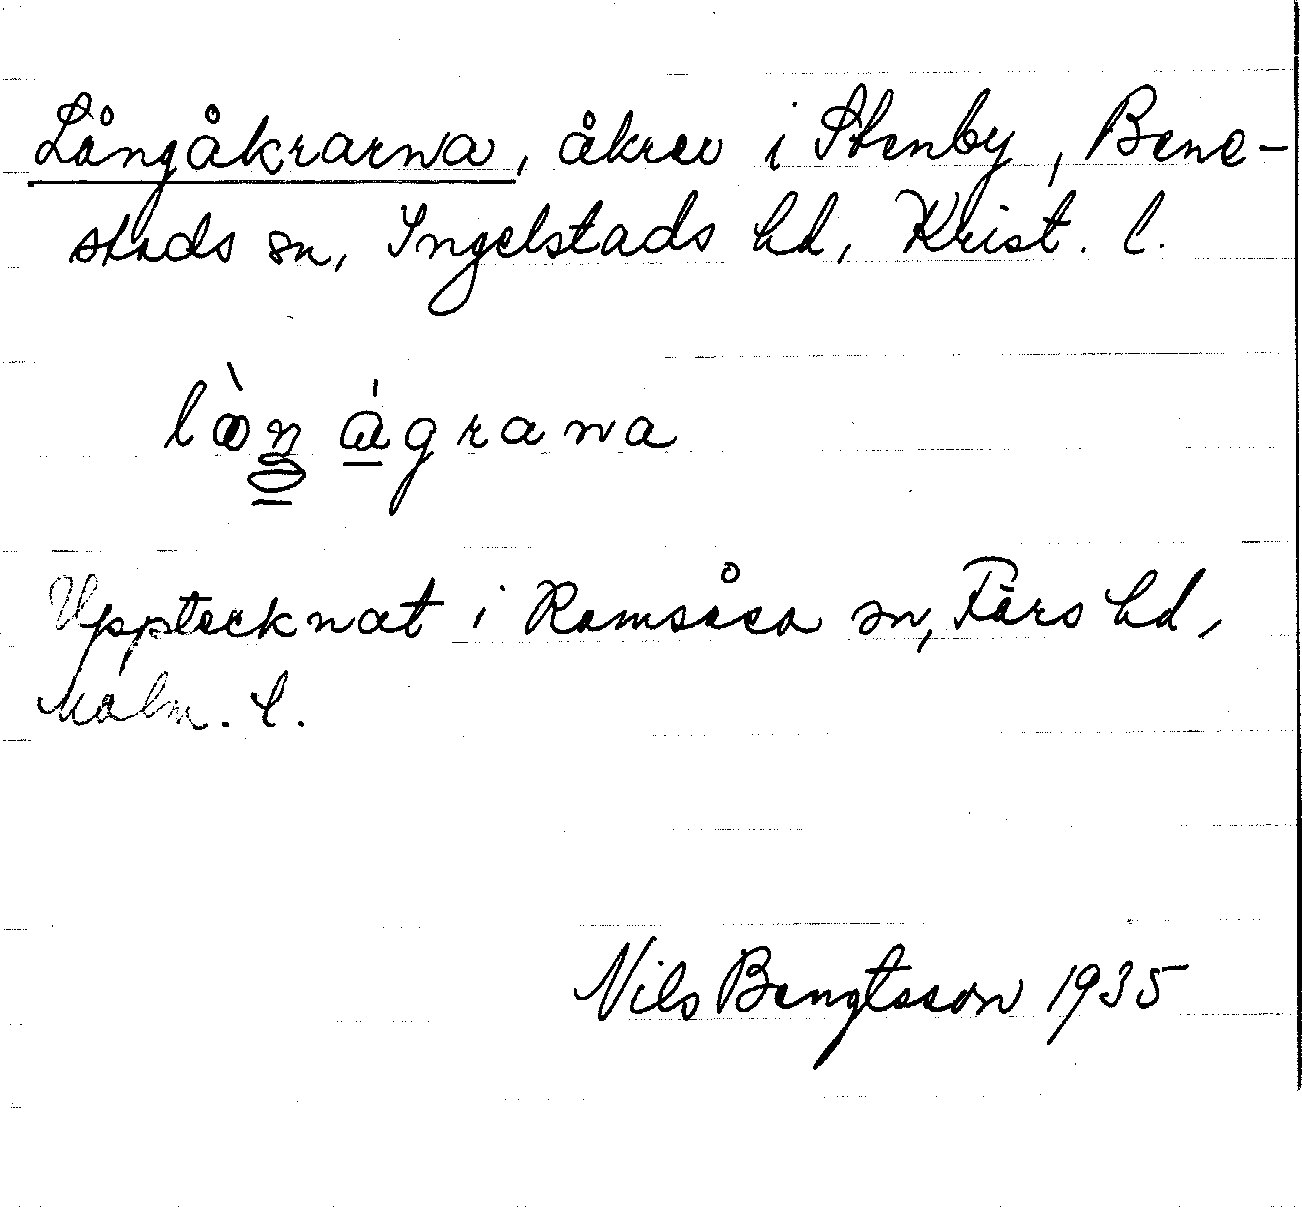 Långåkrarna, åkrar i Stenby, Bene-
stads sn, Ingelstads hd, Krist. l.
Upptecknat i Ramsåsa sn, Färs hd,
Malm. l.
Nils Bengtsson 1935